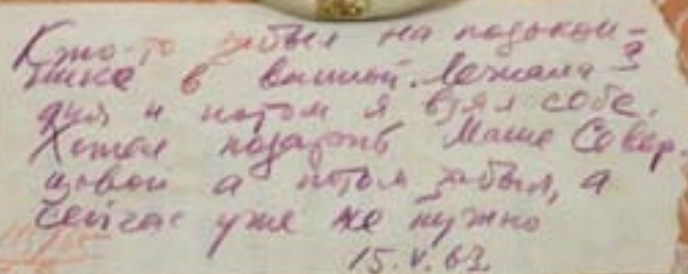 Кто-то забыл на подокон-
нике в ванной. Лежала 3
дня и потом я взял себе.
Хотел подарить Маше Север-
цовой а потом забыл, а
сейчас уже не нужно
15.V.63.